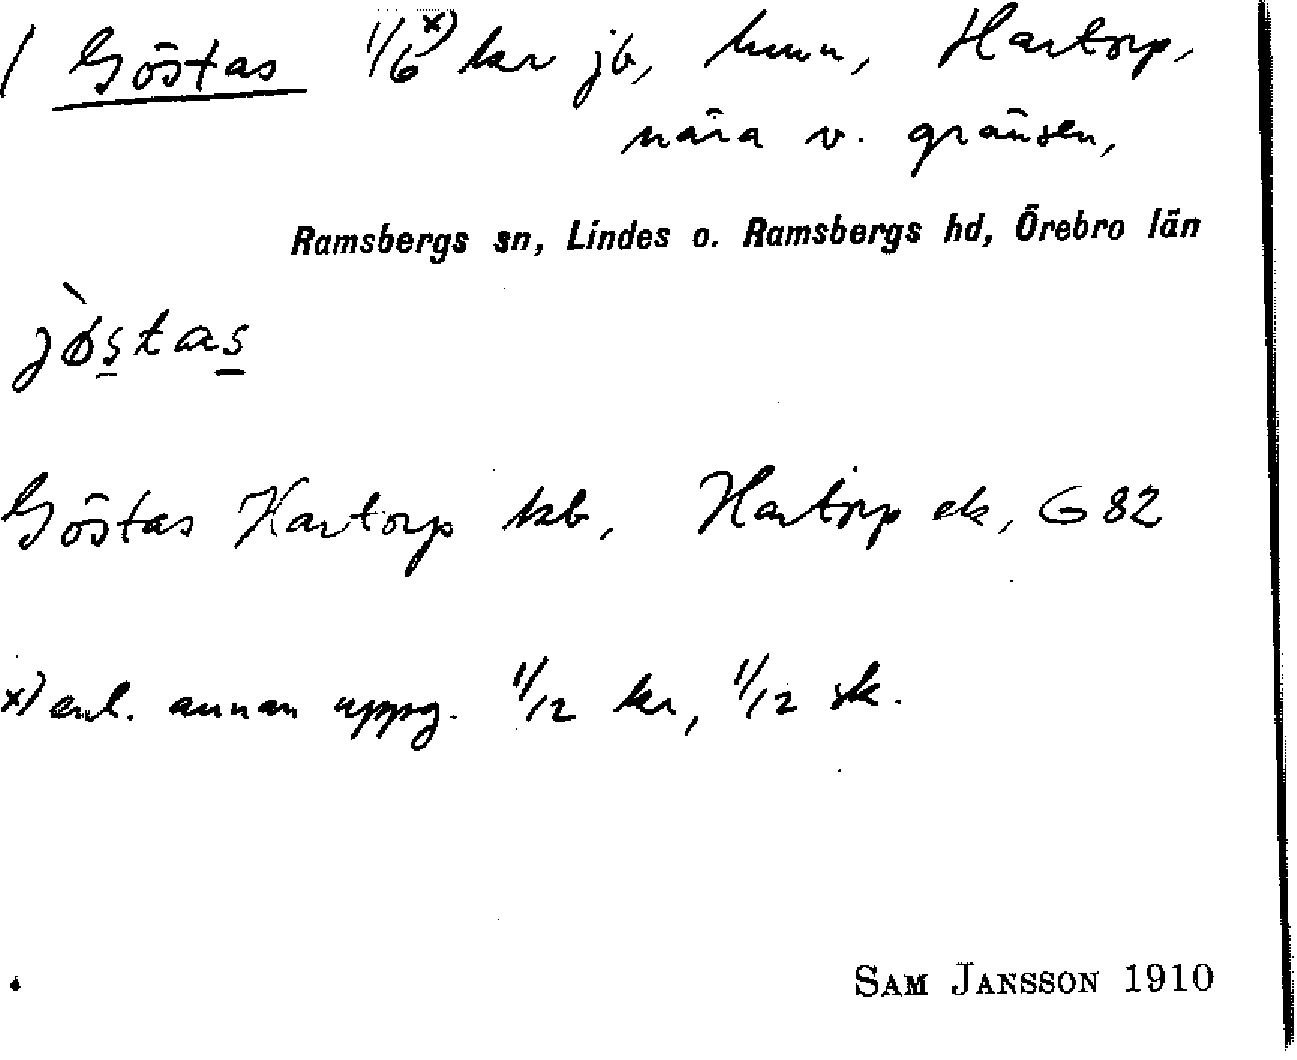 / Göstas 1/6 x) kr jb, hmn, Hartorp,
nära v. gränsen,
Ramsbergs sn, Lindes o. Ramsbergs hd, Örebro län
jø̀s̲tas̲
Göstas Hartorp kb, Hartorp ek, G 82
x) enl. annan uppg. 1/12 kr, 1/12 sk.
SAM JANSSON 1910